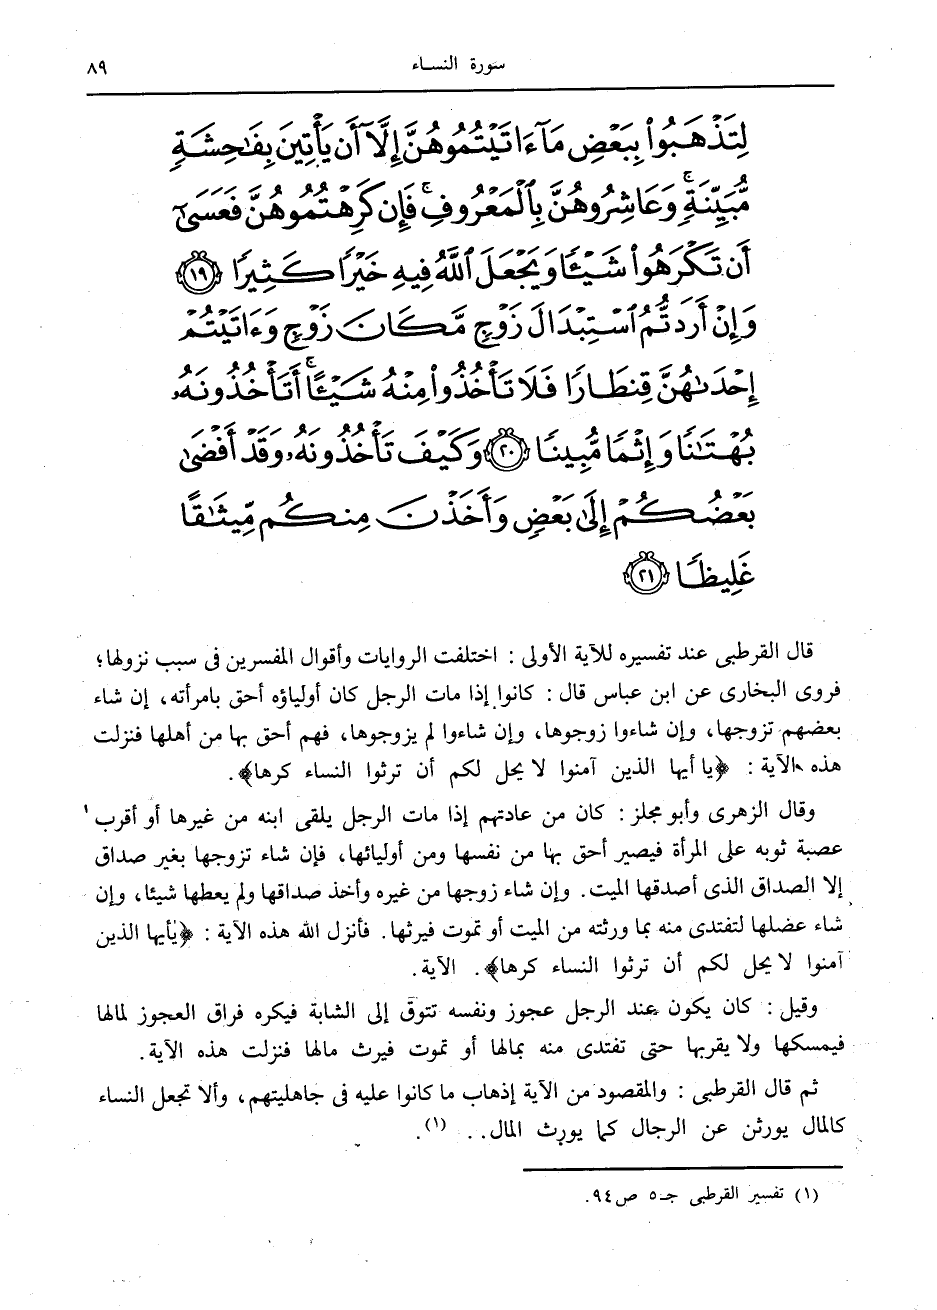 سورة النساء
٨٩
لِتَذْهَبُوا۟ بِبَعْضِ مَآ ءَاتَيْتُمُوهُنَّ إِلَّآ أَن يَأْتِينَ بِفَٰحِشَةٍ
مُّبَيِّنَةٍ ۚ وَعَاشِرُوهُنَّ بِٱلْمَعْرُوفِ ۚ فَإِن كَرِهْتُمُوهُنَّ فَعَسَىٰٓ
أَن تَكْرَهُوا۟ شَيْـًٔا وَيَجْعَلَ ٱللَّهُ فِيهِ خَيْرًا كَثِيرًا ١٩
وَإِنْ أَرَدتُّمُ ٱسْتِبْدَالَ زَوْجٍ مَّكَانَ زَوْجٍ وَءَاتَيْتُمْ
إِحْدَىٰهُنَّ قِنطَارًا فَلَا تَأْخُذُوا۟ مِنْهُ شَيْـًٔا ۚ أَتَأْخُذُونَهُۥ
بُهْتَٰنًا وَإِثْمًا مُّبِينًا ٢٠ وَكَيْفَ تَأْخُذُونَهُۥ وَقَدْ أَفْضَىٰ
بَعْضُكُمْ إِلَىٰ بَعْضٍ وَأَخَذْنَ مِنكُم مِّيثَٰقًا
غَلِيظًا ٢١
قال القرطبى عند تفسيره للآية الأولى : اختلفت الروايات وأقوال المفسرين فى سبب نزولها؛
فروى البخارى عن ابن عباس قال : كانوا إذا مات الرجل كان أولياؤه أحق بامرأته، إن شاء
بعضهم تزوجها، وإن شاءوا زوجوها، وإن شاءوا لم يزوجوها، فهم أحق بها من أهلها فنزلت
هذه الآية : ﴿يا أيها الذين آمنوا لا يحل لكم أن ترثوا النساء كرها﴾.
وقال الزهرى وأبو مجلز : كان من عادتهم إذا مات الرجل يلقى ابنه من غيرها أو أقرب
عصبة ثوبه على المرأة فيصير أحق بها من نفسها ومن أوليائها، فإن شاء تزوجها بغير صداق
إلا الصداق الذى أصدقها الميت. وإن شاء زوجها من غيره وأخذ صداقها ولم يعطها شيئا، وإن
شاء عضلها لتفتدى منه بما ورثته من الميت أو تموت فيرثها. فأنزل الله هذه الآية : ﴿يأيها الذين
آمنوا لا يحل لكم أن ترثوا النساء كرها﴾. الآية.
وقيل : كان يكون عند الرجل عجوز ونفسه تتوق إلى الشابة فيكره فراق العجوز لمالها
فيمسكها ولا يقربها حتى تفتدى منه بمالها أو تموت فيرث مالها فنزلت هذه الآية.
ثم قال القرطبى : والمقصود من الآية إذهاب ما كانوا عليه فى جاهليتهم، وألا تجعل النساء
كالمال يورثن عن الرجال كما يورث المال.. (١).
(١) تفسير القرطبى جـ٥ ص٩٤.